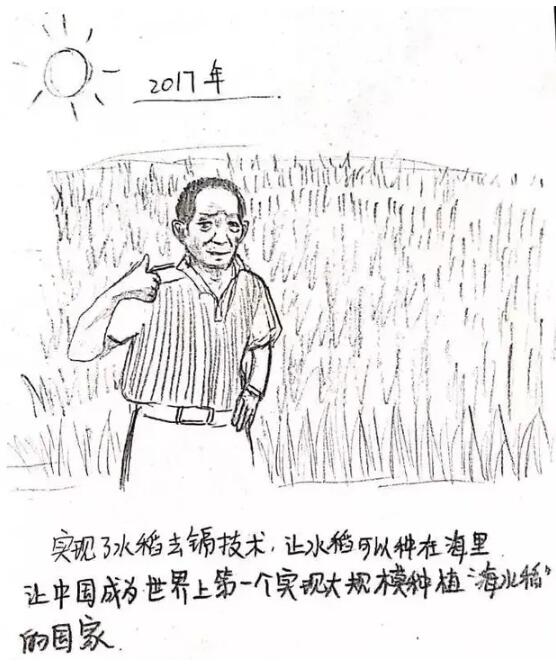 2017年
实现了水稻去镉技术，让水稻可以种在海里
让中国成为世界上第一个实现大规模种植“海水稻”
的国家.